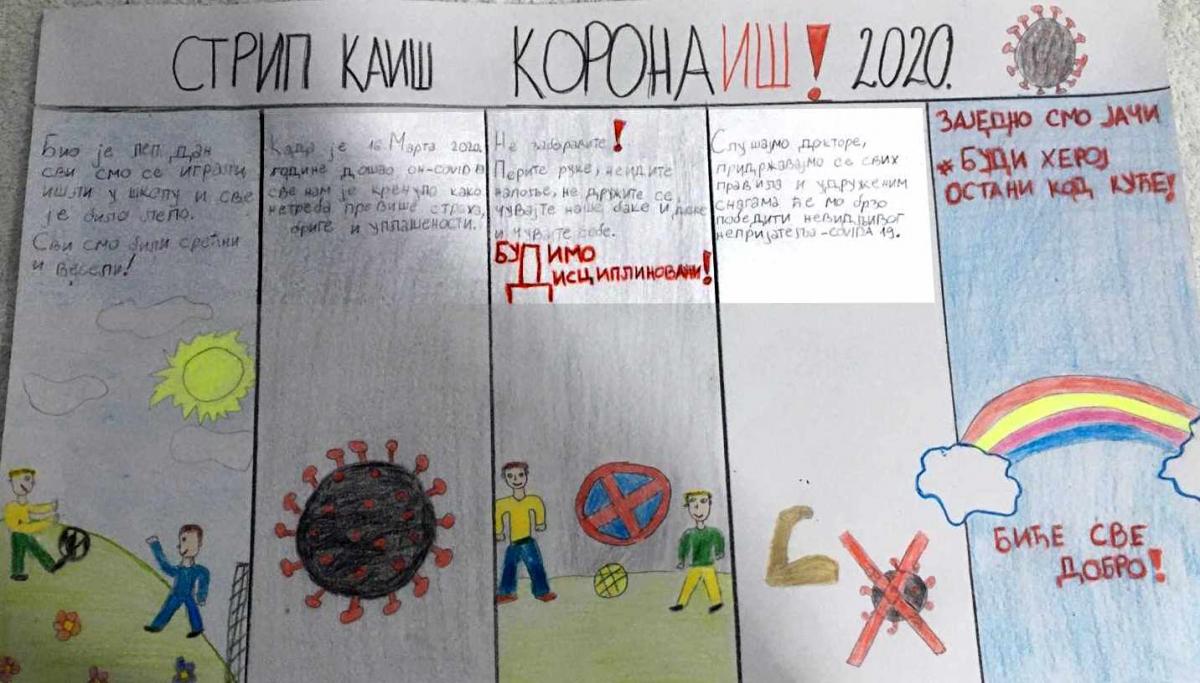 СТРИП КАИШ КОРОНАИШ! 2020.
Био је леп дан
сви смо се играли,
ишли у школу и све
је било лепо.
Сви смо били срећни
и весели!
Када је 16 Марта 2020.
године дошао он-COVID 19
све нам је кренуло како
нетреба превише страха,
бриге и уплашености.
Не заборавите!
Перите руке, неидите
напоље, не дружите се
чувајте наше баке и деке
и чувајте себе.
БУДИМО
ДИСЦИПЛИНОВАНИ!
Слушајмо докторе,
придржавајмо се свих
правила и удруженим
снагама ће мо брзо
победити невидљивог
непријатеља-COVIDA 19.
ЗАЈЕДНО СМО ЈАЧИ
#БУДИ ХЕРОЈ
ОСТАНИ КОД КУЋЕ!
БИЋЕ СВЕ
ДОБРО!